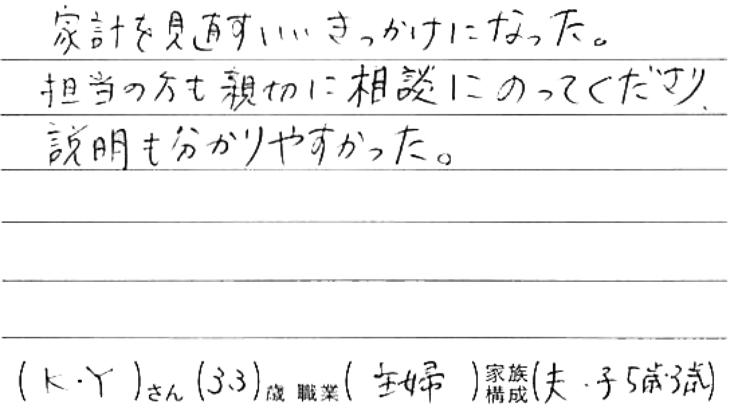 家計を見直すいいきっかけになった。
担当の方も親切に相談にのってくださり、
説明も分かりやすかった。
(K・Y)さん (33)歳 職業(主婦)家族構成(夫・子5歳・3歳)